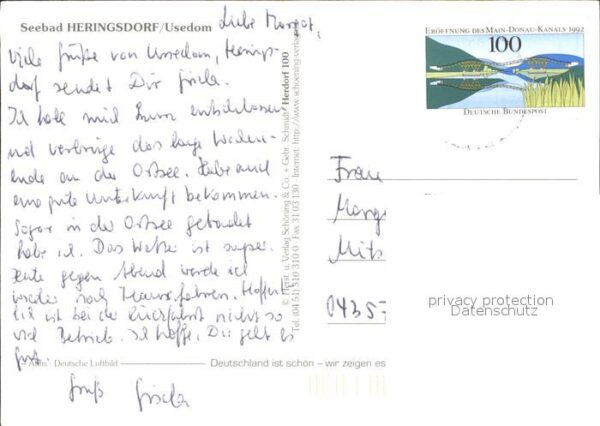 Seebad HERINGSDORF/Usedom
Liebe Margot,
Viele Grüße von Usedom, Herings-
dorf sendet Dir Gisela.
Ich habe mich kurz entschlossen
und verbringe das lange Wochen-
ende an der Ostsee. Habe auch
eine gute Unterkunft bekommen.
Sogar in der Ostsee gebadet
habe ich. Das Wetter ist super.
Heute gegen Abend werde ich
wieder nach Hause fahren. Hoffent
lich ist bei der Rückfahrt nicht so
viel Betrieb. Ich hoffe, Dir geht es
gut.
Gruß Gisela
Aufn.: Deutsche Luftbild
Deutschland ist schön – wir zeigen es
© Herst. u. Verlag Schöning & Co. + Gebr. Schmidt
Herdorf 100
Tel. (04 51) 310 310 · Fax 31 03 130 · Internet: http://www.schoening-verlag
ERÖFFNUNG DES MAIN-DONAU-KANALS 1992
100
DEUTSCHE BUNDESPOST
Frau
Marg
Mits
0435
privacy protection
Datenschutz